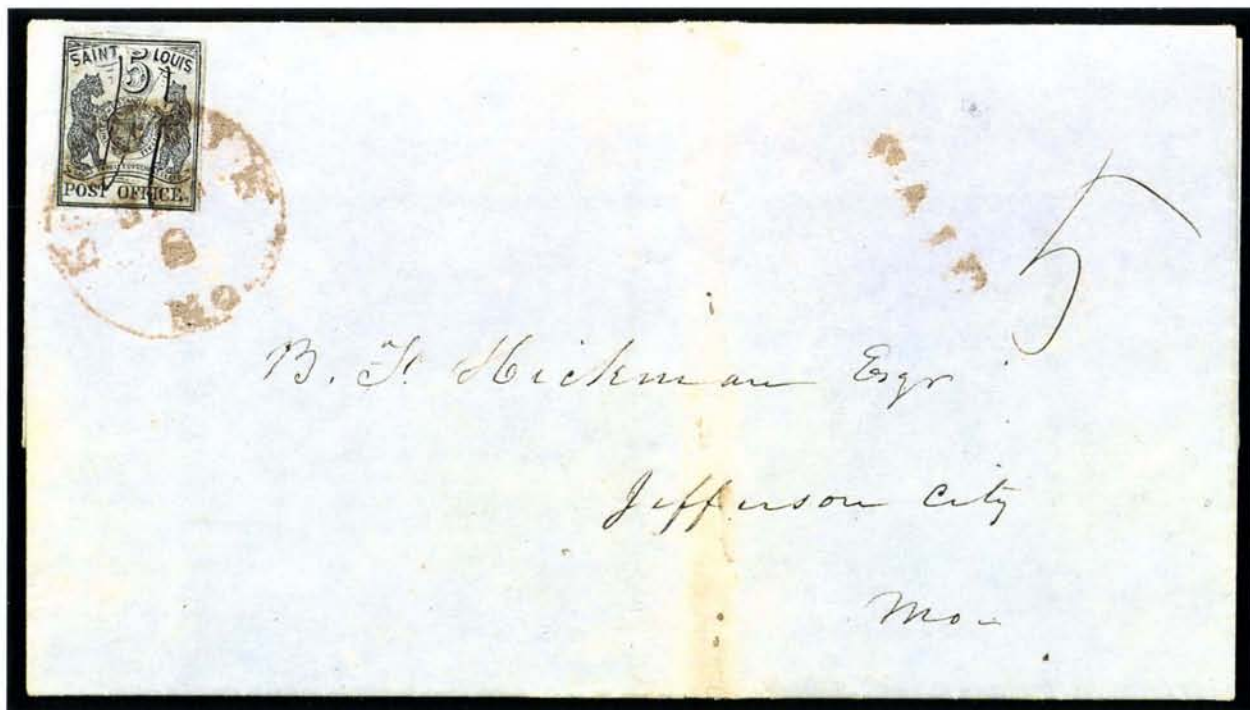 SAINT LOUIS
5
POST OFFICE.
MO.
PAID
5
B. F. Hickman Esqr
Jefferson City
Mo-